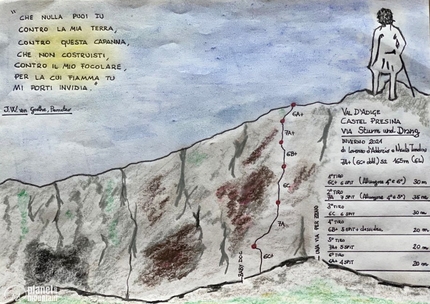 " CHE NULLA PUOI TU
CONTRO LA MIA TERRA,
CONTRO QUESTA CAPANNA,
CHE NON COSTRUISTI,
CONTRO IL MIO FOCOLARE,
PER LA CUI FIAMMA TU
MI PORTI INVIDIA "
J.W. von Goethe,
VAL D'ADIGE
CASTEL PRESINA
VIA Sturm und Drang
INVERNO 2021
di Lorenzo d'Addario e Nicola
7A+ S2 165m (6L)
6A+
7A+
6B+
6C
7A
6C+
L1 VIA PER ZENO
6°TIRO
6C+ 6 SPIT 30 m
2°TIRO
7A 9 SPIT 35 m
3°TIRO
6C 6 SPIT 30 m
4°TIRO
6B+ 5 SPIT + 20 m
5°TIRO
7A+ 5 SPIT 20 m
6°TIRO
6A+ 4 SPIT 20 m
planet
mountain